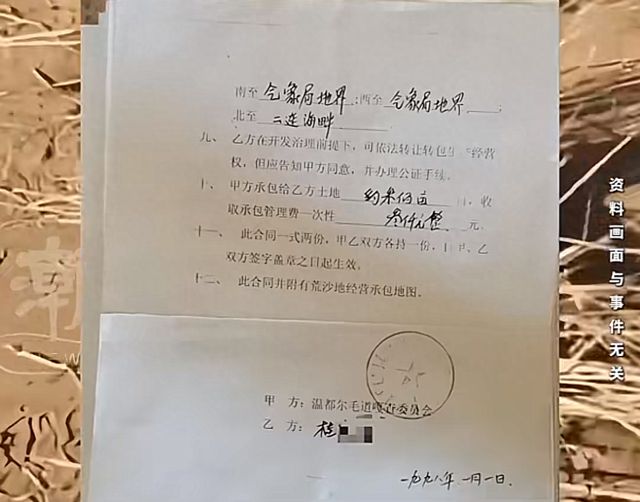 南至 气象局地界 ;西至 气象局地界 ;
北至 二连海畔
九、 乙方在开发治理前提下,可依法转让转包 经营
权,但应告知甲方同意,并办理公证手续。
十、 甲方承包给乙方土地 亩,收
取承包管理费一次性 叁仟元整 元。
十一、 此合同一式两份,甲乙双方各持一份,自甲、乙
双方签字盖章之日起生效。
十二、 此合同并附有荒沙地经营承包地图。
甲 方:温都尔毛道嘎查委员会
乙 方:桂
一九九八年一月一日.
资料画面与事件无关